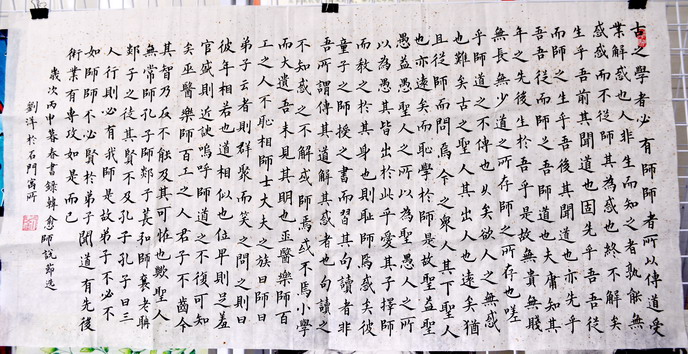 古之學者必有師師者所以傳道受
業解惑也人非生而知之者孰能無
惑惑而不從師其為惑也終不解矣
生乎吾前其聞道也固先乎吾吾從
而師之生乎吾後其聞道也亦先乎
吾吾從而師之吾師道也夫庸知其
年之先後生於吾乎是故無貴無賤
無長無少道之所存師之所存也嗟
乎師道之不傳也久矣欲人之無惑
也難矣古之聖人其出人也遠矣猶
且從師而問焉今之衆人其下聖人
也亦遠矣而恥學於師是故聖益聖
愚益愚聖人之所以為聖愚人之所
以為愚其皆出於此乎愛其子擇師
而教之於其身也則恥師焉惑矣彼
童子之師授之書而習其句讀者非
吾所謂傳其道解其惑者也句讀之
不知惑之不解或師焉或不焉小學
而大遺吾未見其明也巫醫樂師百
工之人不恥相師士大夫之族曰師曰
弟子云者則群聚而笑之問之則曰
彼年相若也道相似也位卑則足羞
官盛則近諛嗚呼師道之不復可知
矣巫醫樂師百工之人君子不齒今
其智乃反不能及其可怪也歟聖人
無常師孔子師郯子萇和師襄老聃
郯子之徒其賢不及孔子孔子曰三
人行則必有我師是故弟子不必不
如師師不必賢於弟子聞道有先後
術業有專攻如是而已
歲次丙申暮春書錄韓愈師說節選
劉洋於石門寓所